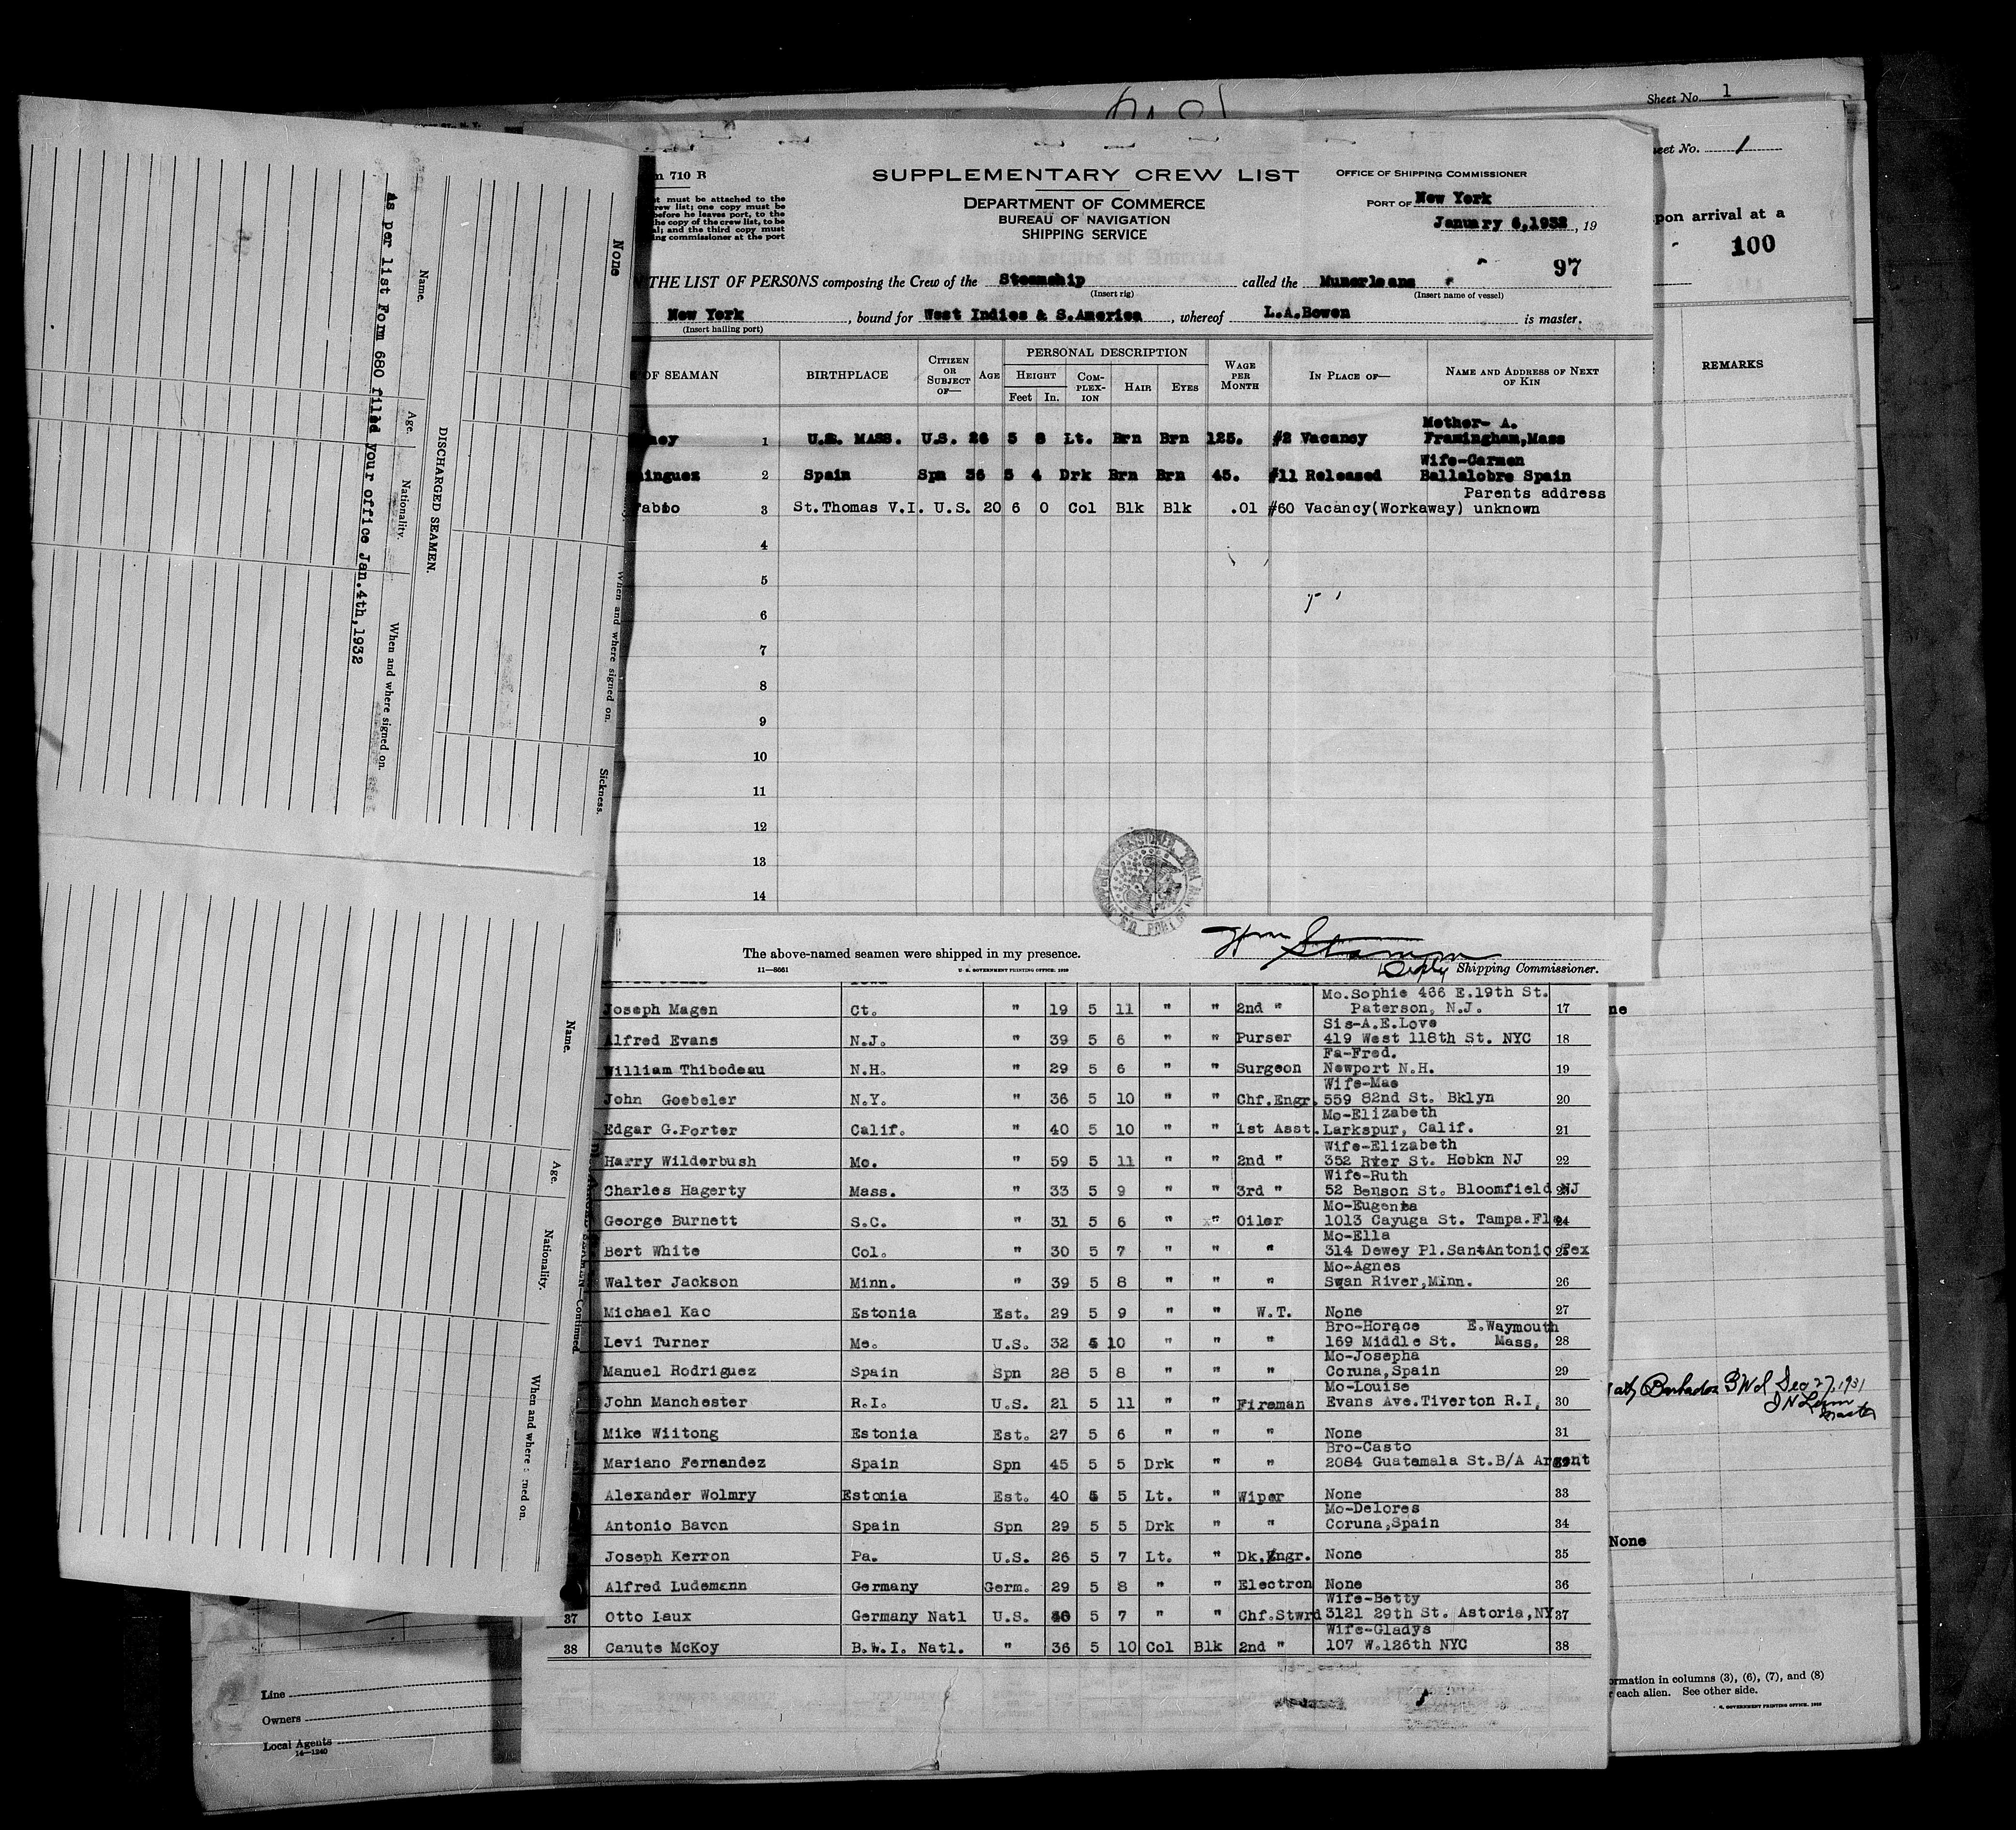 Sheet No. 1
Sheet No. 1
upon arrival at a
100
REMARKS
710 R
must be attached to the
crew list; one copy must be
before he leaves port, to the
the copy of the crew list, to be
and the third copy must
commissioner at the port
SUPPLEMENTARY CREW LIST
DEPARTMENT OF COMMERCE
BUREAU OF NAVIGATION
SHIPPING SERVICE
OFFICE OF SHIPPING COMMISSIONER
PORT OF New York
January 6,1932, 19
97
THE LIST OF PERSONS composing the Crew of the Steamship called the Munorleans
(Insert rig) (Insert name of vessel)
New York, bound for West Indies & S.America, whereof L.A.Bowen is master.
(Insert hailing port)
OF SEAMAN BIRTHPLACE CITIZEN OR SUBJECT OF— AGE PERSONAL DESCRIPTION HEIGHT Feet In. COMPLEXION HAIR EYES WAGE PER MONTH IN PLACE OF— NAME AND ADDRESS OF NEXT OF KIN
Mother- A.
1 U.S. MASS. U.S. 26 5 8 Lt. Brn Brn 125. #2 Vacancy Framingham,Mass
Wife-Carmen
inguez 2 Spain Spn 36 5 4 Drk Brn Brn 45. #11 Released Ballalobre Spain
Parents address
Fabio 3 St.Thomas V.I. U.S. 20 6 0 Col Blk Blk .01 #60 Vacancy(Workaway) unknown
4
5
6
7
8
9
10
11
12
13
14
The above-named seamen were shipped in my presence.
Wm
Deputy Shipping Commissioner.
11—8661 U. S. GOVERNMENT PRINTING OFFICE: 1929
Mo.Sophie 466 E.19th St.
Joseph Magen Ct. " 19 5 11 " " 2nd " Paterson, N.J. 17
Sis-A.E.Love
Alfred Evans N.J. " 39 5 6 " " Purser 419 West 118th St. NYC 18
Fa-Fred.
William Thibodeau N.H. " 29 5 6 " " Surgeon Newport N.H. 19
Wife-Mae
John Goebeler N.Y. " 36 5 10 " " Chf.Engr. 559 82nd St. Bklyn 20
Mo-Elizabeth
Edgar G.Porter Calif. " 40 5 10 " " 1st Asst. Larkspur, Calif. 21
Wife-Elizabeth
Harry Wilderbush Mo. " 59 5 11 " " 2nd " 352 River St. Hobkn NJ 22
Wife-Ruth
Charles Hagerty Mass. " 33 5 9 " " 3rd " 52 Benson St. Bloomfield NJ 23
Mo-Eugenia
George Burnett S.C. " 31 5 6 " " Oiler 1013 Cayuga St. Tampa.Fla 24
Mo-Ella
Bert White Col. " 30 5 7 " " " 314 Dewey Pl.SantAntonio Tex 25
Mo-Agnes
Walter Jackson Minn. " 39 5 8 " " " Swan River,Minn. 26
Michael Kac Estonia Est. 29 5 9 " " W.T. None 27
Bro-Horace E.Waymouth
Levi Turner Me. U.S. 32 5 10 " " " 169 Middle St. Mass. 28
Mo-Josepha
Manuel Rodriguez Spain Spn 28 5 8 " " " Coruna,Spain 29
Mo-Louise
John Manchester R.I. U.S. 21 5 11 " " Fireman Evans Ave.Tiverton R.I. 30
Mike Wiitong Estonia Est. 27 5 6 " " " None 31
Bro-Casto
Mariano Fernandez Spain Spn 45 5 5 Drk " " 2084 Guatamala St.B/A Argent 32
Alexander Wolmry Estonia Est. 40 5 5 Lt. " Wiper None 33
Mo-Delores
Antonio Bavon Spain Spn 29 5 5 Drk " " Coruna,Spain 34
Joseph Kerron Pa. U.S. 26 5 7 Lt. " Dk.Engr. None 35
Alfred Ludemann Germany Germ. 29 5 8 " " Electron None 36
Wife-Betty
37 Otto Laux Germany Natl U.S. 5 7 " " Chf.Stwrd 3121 29th St. Astoria,NY 37
Wife-Gladys
38 Canute McKoy B.W.I. Natl. " 36 5 10 Col Blk 2nd " 107 W.126th NYC 38
None
When and where signed on.
Sickness.
DISCHARGED SEAMEN.
Name. Age. Nationality. When and where signed on.
As per list Form 680 filled your office Jan.4th,1932
DISCHARGED SEAMEN—Continued.
Name. Age. Nationality. When and where signed on.
Barbados BWI Dec 27, 1931
Master
None
information in columns (3), (6), (7), and (8)
each alien. See other side.
GOVERNMENT PRINTING OFFICE: 1929
Line
Owners
Local Agents
14—1240